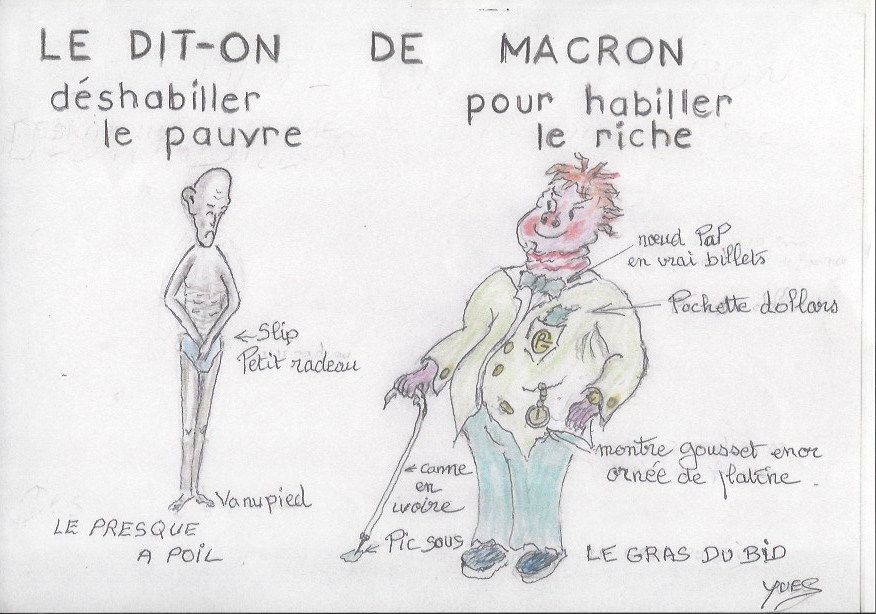 LE DIT-ON DE MACRON
déshabiller
le pauvre
pour habiller
le riche
nœud PaP
en vrai billets
Pochette dollars
←Slip
Petit radeau
montre gousset en or
ornée de platine.
←canne
en
ivoire
Vanupied
←Pic sous
LE PRESQUE
A POIL
LE GRAS DU BID
YVES